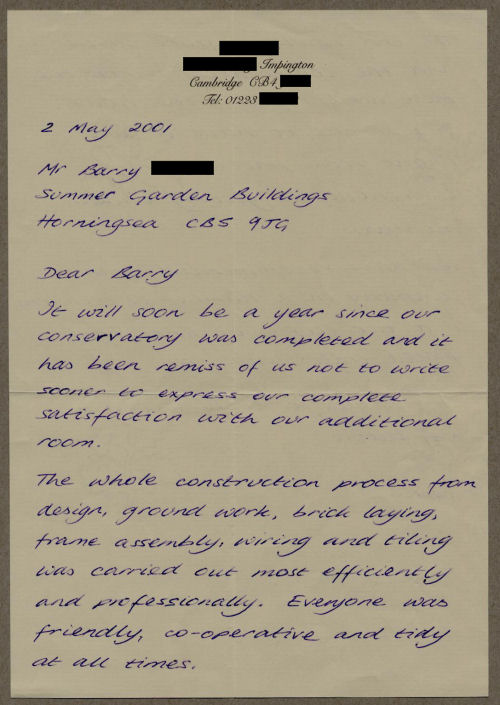 Impington
Cambridge CB4
Tel: 01223
2 May 2001
Mr Barry
Summer Garden Buildings
Horningsea CB5 9JG
Dear Barry
It will soon be a year since our
conservatory was completed and it
has been remiss of us not to write
sooner to express our complete
satisfaction with our additional
room.
The whole construction process from
design, ground work, brick laying,
frame assembly, wiring and tiling
was carried out most efficiently
and professionally. Everyone was
friendly, co-operative and tidy
at all times.